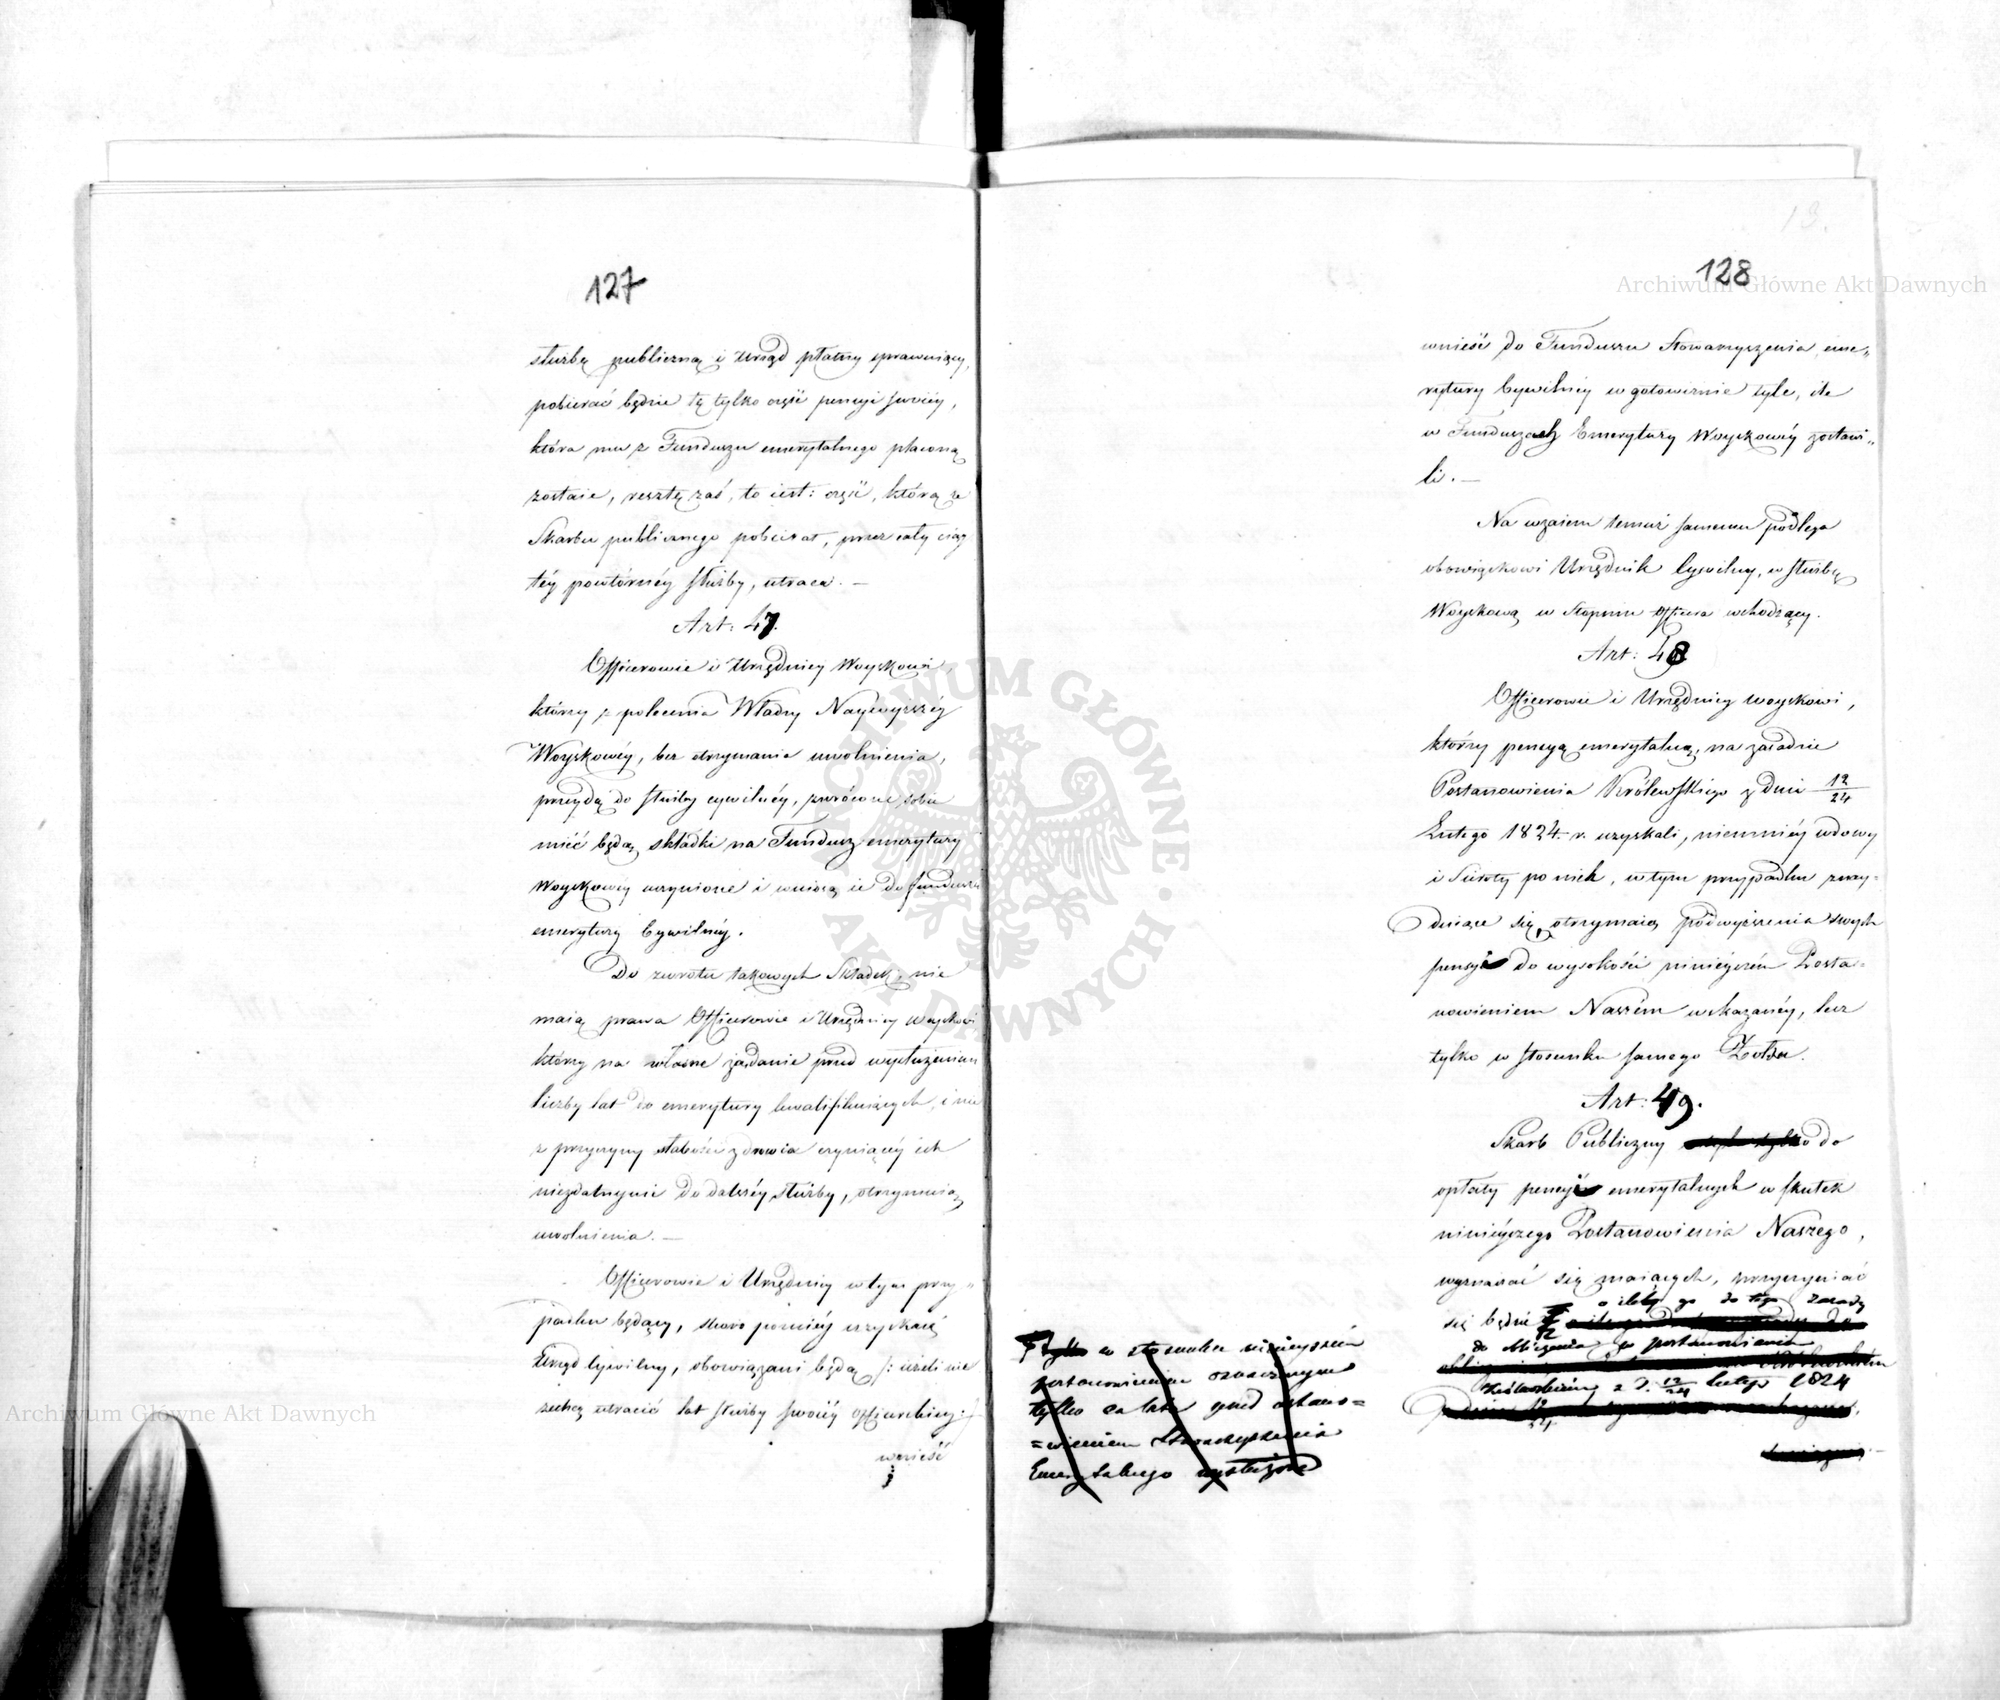 127
służbę publiczną i Urząd płatny sprawuiący,
pobierać będzie tę tylko część pensyi swoiéy,
która mu z Funduszu emerytalnego płaconą
zostaie, resztę zaś, to iest: część, którą ze
Skarbu publicznego pobierał, przez cały ciąg
téy powtórnéy służby, utraca. —
Art: 47.
Officerowie i Urzędnicy Woyskowi,
którzy z polecenia Władzy Naywyższéy
Woyskowéy, bez otrzymania uwolnienia,
przeydą do służby cywilnéy, zwrócone sobie
mieć będą składki na Fundusz emerytury
Woyskowéy uczynione i wniosą ie do funduszu
emerytury Cywilnéy.
Do zwrotu takowych Składek, nie
maią prawa Officerowie i Urzędnicy Woyskowi
którzy na własne żądanie przed wysłużeniem
liczby lat do emerytury kwalifikuiących, i nie
z przyczyny słabości zdrowia czyniącéy ich
niezdatnymi do dalszéy służby, otrzymuią
uwolnienia. —
Officerowie i Urzędnicy w tym przy„
padku będący, skoro poźniéy uzyskaią
Urząd Cywilny, obowiązani będą /: ieżeli nie
zechcą utracić lat służby swoiéy officerskiey :/
wnieść
128
wnieść do Funduszu Stowarzyszenia eme„
rytury Cywilnéy w gotowiznie tyle, ile
w Funduszach Emerytury Woyskowéy zostawi„
li. —
Na wzaiem temuż samemu podlega
obowiązkowi Urzędnik Cywilny, w służbę
Woyskową w Stopniu Officera wchodzący.
Art: 48
Officerowie i Urzędnicy woyskowi,
którzy pensyą emerytalną, na zasadzie
Postanowienia Królewskiego z dnia 12/24
Lutego 1824. r. uzyskali, niemniéy wdowy
i Sieroty po nich, w tym przypadku znay=
duiące się, otrzymaią podwyższenia swych
pensyi do wysokości ninieyszém Posta=
nowieniem Naszém wskazanéy, lecz
tylko w stosunku samego Żołdu.
Art: 49.
Skarb Publiczny do
opłaty pensyi emerytalnych w skutek
ninieyszego Postanowienia Naszego,
wyznaczać się maiących, przyczyniać
o ileby go do tego zasady
się będzie
do obliczenia postanowieniem
z d. 12/24 Lutego 1824
tylko w stosunku ninieyszém
postanowieniem oznaczonym
tylko za lata przed ustano=
=wieniem Stowarzyszenia
Emerytalnego wysłużone